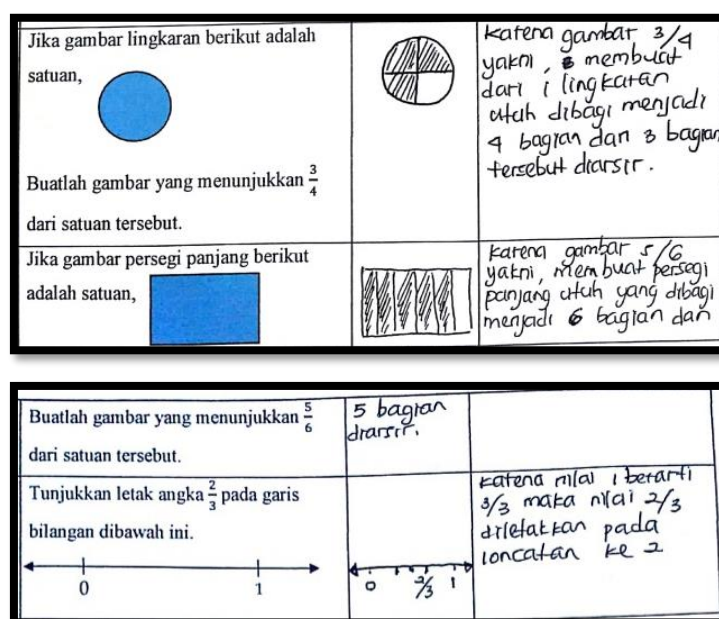 Jika gambar lingkaran berikut adalah
satuan,
Buatlah gambar yang menunjukkan 3/4
dari satuan tersebut.
Karena gambar 3/4
yakni, membuat
dari 1 lingkaran
utuh dibagi menjadi
4 bagian dan 3 bagian
tersebut diarsir.
Jika gambar persegi panjang berikut
adalah satuan,
Karena gambar 5/6
yakni, membuat persegi
panjang utuh yang dibagi
menjadi 6 bagian dan
Buatlah gambar yang menunjukkan 5/6
dari satuan tersebut.
5 bagian
diarsir.
Tunjukkan letak angka 2/3 pada garis
bilangan dibawah ini.
0 1
0 2/3 1
Karena nilai 1 berarti
3/3 maka nilai 2/3
diletakkan pada
loncatan ke 2